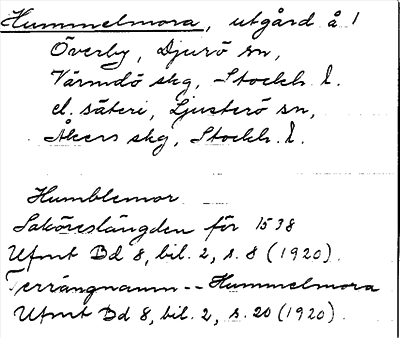 Hummelmora, utgård å
Överby, Djurö sn,
Värmdö skg, Stockh. l.
el. säteri, Ljusterö sn,
Åkers skg, Stockh. l.
Humblemor
Saköreslängden för 1538
Ufmt Bd 8, bil. 2, s. 8 (1920).
Terrängnamn -- Hummelmora
Ufmt Bd 8, bil. 2, s. 20 (1920).